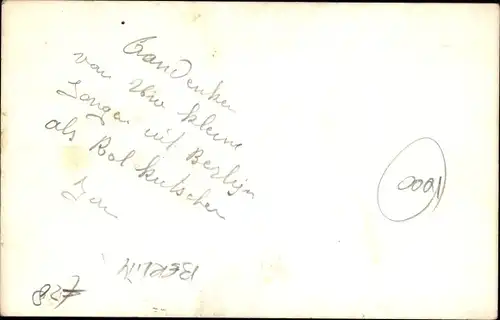 Aandenken
van Uw kleine
Jongen uit Berlijn
als Rol kutscher
Jan
1000
BERLIN